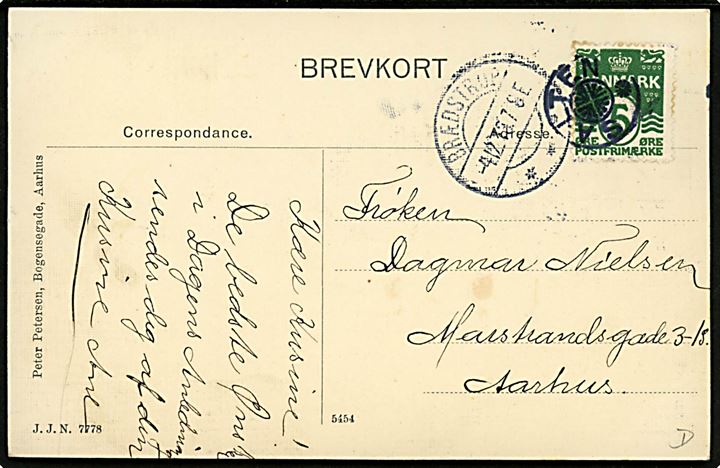 BREVKORT
Correspondance.
Adresse.
BRÆDSTRUP
-4.12. 7-8 E.
SALTEN
DANMARK
5
ØRE ØRE
POSTFRIMÆRKE
Peter Petersen, Bogensegade, Aarhus
Kære Kusine!
De bedste Ønsk
i Dagens Anledning
sendes dig af din
Kusine
Frøken
Dagmar Nielsen
Marstrandsgade 3-
Aarhus.
J. J. N. 7778
5454
D